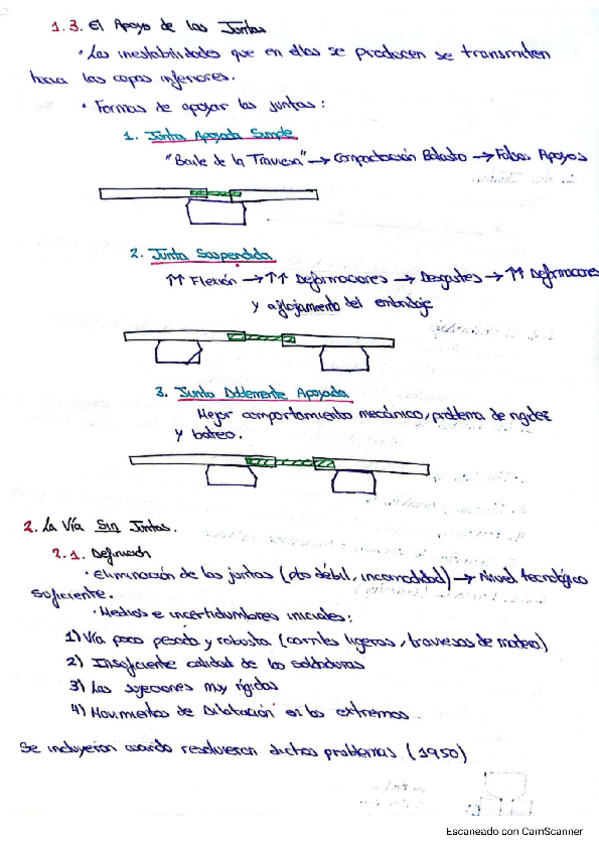 1.3. El Apoyo de las Juntas
· Las inestabilidades que en ellas se producen se transmiten
hacia las capas inferiores.
· Formas de apoyar las juntas:
1. Junta Apoyada Simple
"Baile de la Traviesa" → Compactación Balasto → Falsos Apoyos
2. Junta Suspendida
↑↑ Flexión → ↑↑ Deformaciones → Desgastes → ↑↑ Deformaciones
y aflojamiento del embridaje
3. Junta Doblemente Apoyada
Mejor comportamiento mecánico, problema de rigidez
y bateo.
2. La Vía Sin Juntas.
2.1. Definición
· Eliminación de las juntas (pto débil, incomodidad) → Nivel tecnológico
suficiente.
· Medios e incertidumbres iniciales:
1) Vía poco pesada y robusta (carriles ligeros, traviesas de madera)
2) Insuficiente calidad de las soldaduras
3) Las sujeciones muy rígidas
4) Movimientos de Dilatación en los extremos
Se incluyeron cuando resolvieron dichos problemas (1950)
Escaneado con CamScanner